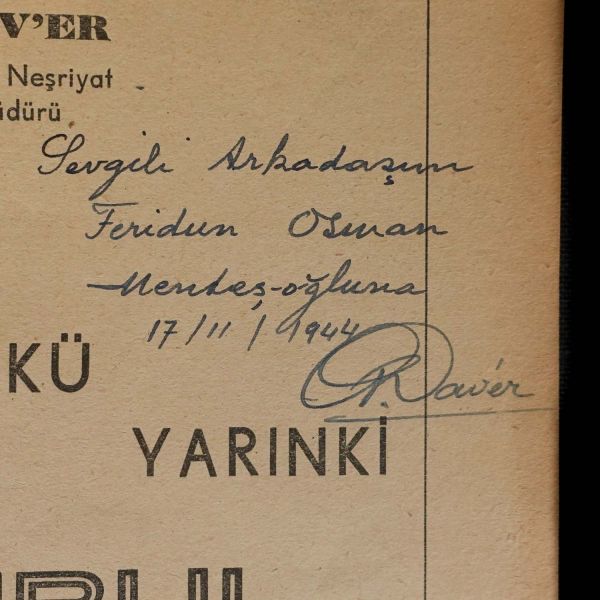 V'ER
Neşriyat
üdürü
Sevgili Arkadaşım
Feridun Osman
Menteş-oğluna
17/11/1944
Daver
KÜ
YARINKİ